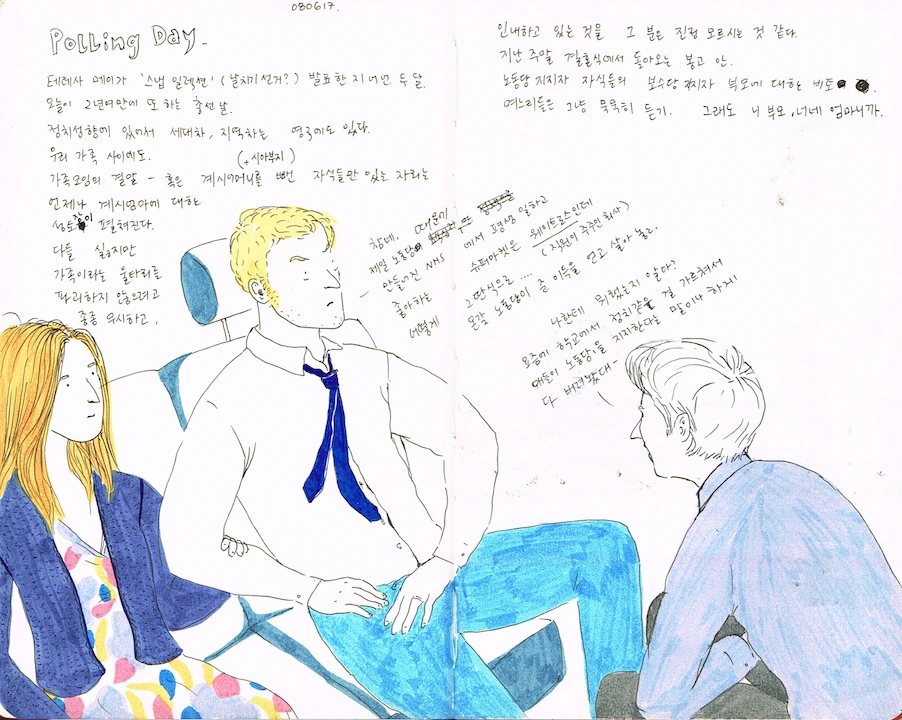 080617.
Polling Day.
테레사 메이가 '스냅 일렉션' (날치기선거?) 발표한지 어언 두 달.
오늘이 2년여만에 또 하는 총선날.
정치성향에 있어서 세대차, 지역차는 영국에도 있다.
우리 가족 사이에도.
(+시아부지)
가족모임의 결말 - 혹은 계시어머니를 뺀 자식들만 있는 자리는
언제나 계시엄마에 대한
성토장이 펼쳐진다.
다들 싫지만
가족이라는 울타리를
파괴하지 않으려고
종종 무시하고,
인내하고 있는 것을 그 분은 진정 모르시는 것 같다.
지난 주말 결혼식에서 돌아오는 봉고 안.
노동당 지지자 자식들의 보수당 지지자 부모에 대한 비토
며느리들은 그냥 묵묵히 듣기. 그래도 니 부모, 너네 엄마니까.
참네,
제일 노동당 때문에
만들어진 NHS 에서 평생 일하고
좋아하는 슈퍼마켓은 웨이트로스인데
(직원이 주주인 회사)
어떻게 그딴식으로....
온갖 노동당이 준 이득을 얻고 살아 놓고.
나한테 뭐랬는지 알아?
요즘에 학교에서 정치같은 걸 가르쳐서
애들이 노동당을 지지한다는 말이나 하게
다 버려놨대-